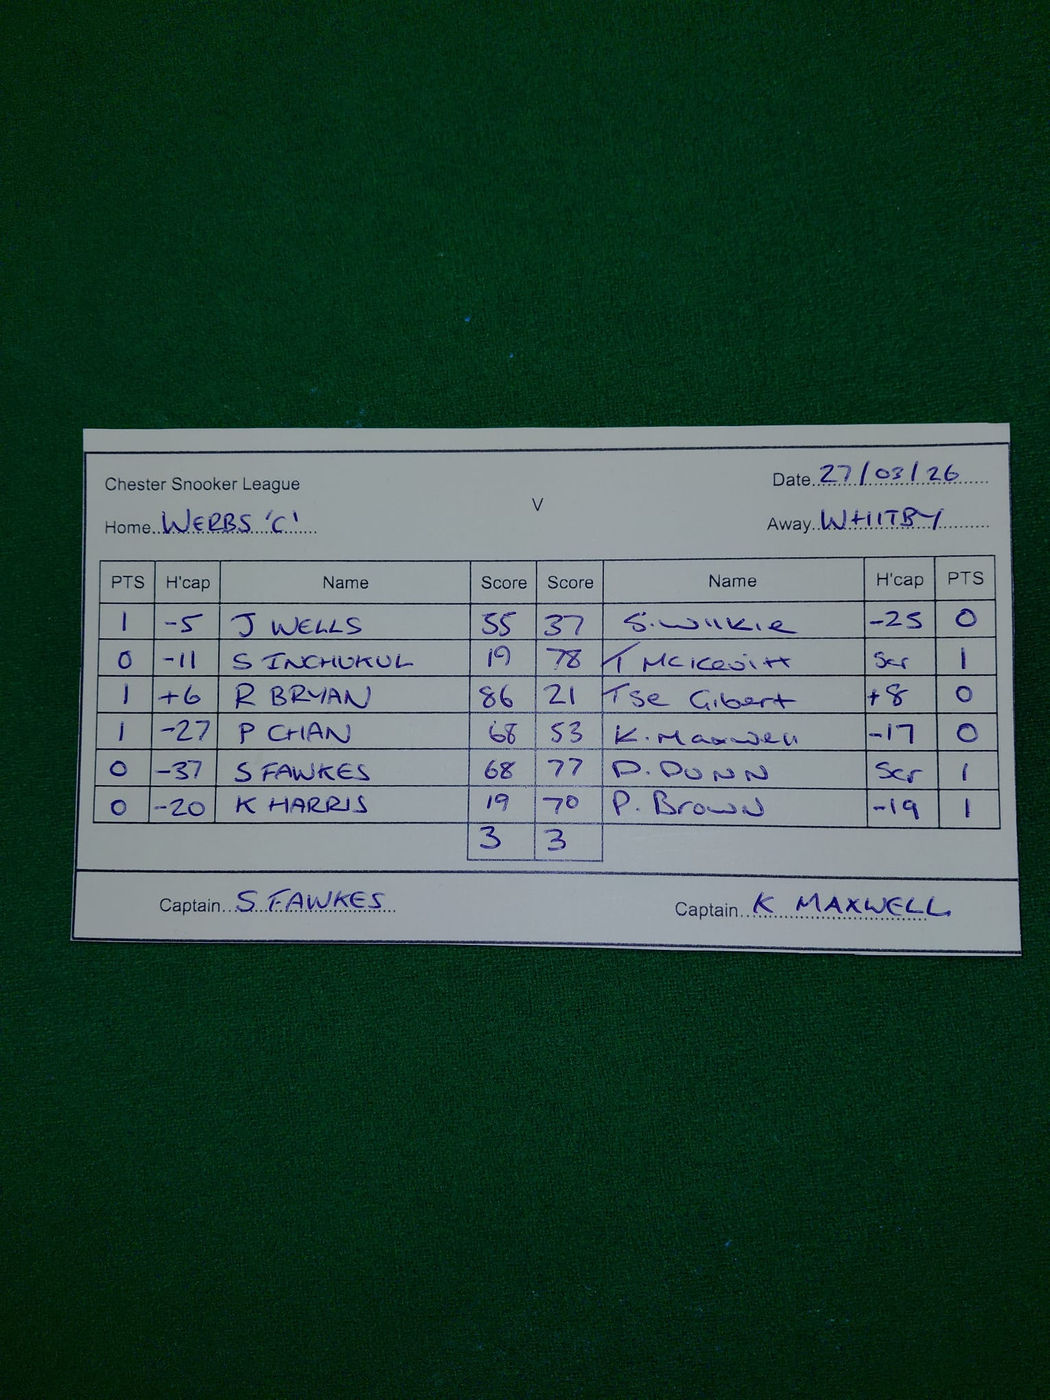 Chester Snooker League
Date 27/03/26
V
Home WERBS 'C'
Away WHITBY
PTS H'cap Name Score Score Name H'cap PTS
1 -5 J WELLS 55 37 S. Wilkie -25 0
0 -11 S INCHUKUL 19 78 T McKevitt Scr 1
1 +6 R BRYAN 86 21 Tse Gibert +8 0
1 -27 P CHAN 68 53 K. Maxwell -17 0
0 -37 S FAWKES 68 77 D. DUNN Scr 1
0 -20 K HARRIS 19 70 P. Brown -19 1
3 3
Captain S FAWKES
Captain K MAXWELL